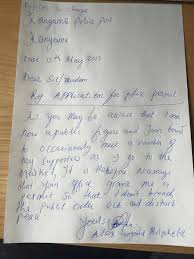 Officer In charge
Kanyama police post
Kanyama
Date 15th May 2013
Dear Sir/Madam
Re: Application for police permit
As you may be aware that I am
now a public figure and I am bound
to occasionally meet a number of
my supporters as I go to the
market, It is therefore necessary
that your office grants me a
permit so that I don't breach
the public order act and disturb
peace
Yours